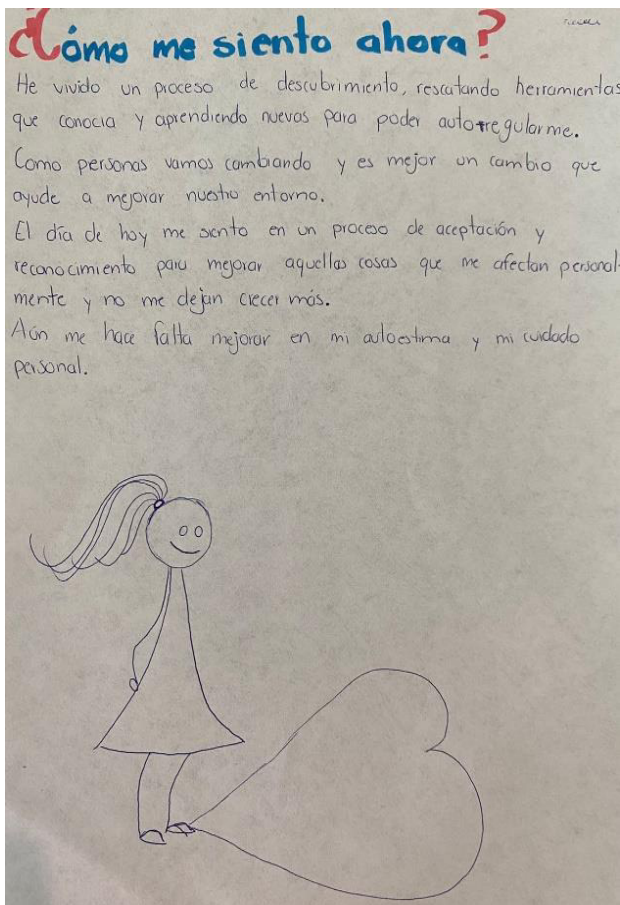 ¿Cómo me siento ahora?
He vivido un proceso de descubrimiento, rescatando herramientas
que conocía y aprendiendo nuevas para poder autorregularme.
Como personas vamos cambiando y es mejor un cambio que
ayude a mejorar nuestro entorno.
El día de hoy me siento en un proceso de aceptación y
reconocimiento para mejorar aquellas cosas que me afectan personal-
mente y no me dejan crecer más.
Aún me hace falta mejorar en mi autoestima y mi cuidado
personal.